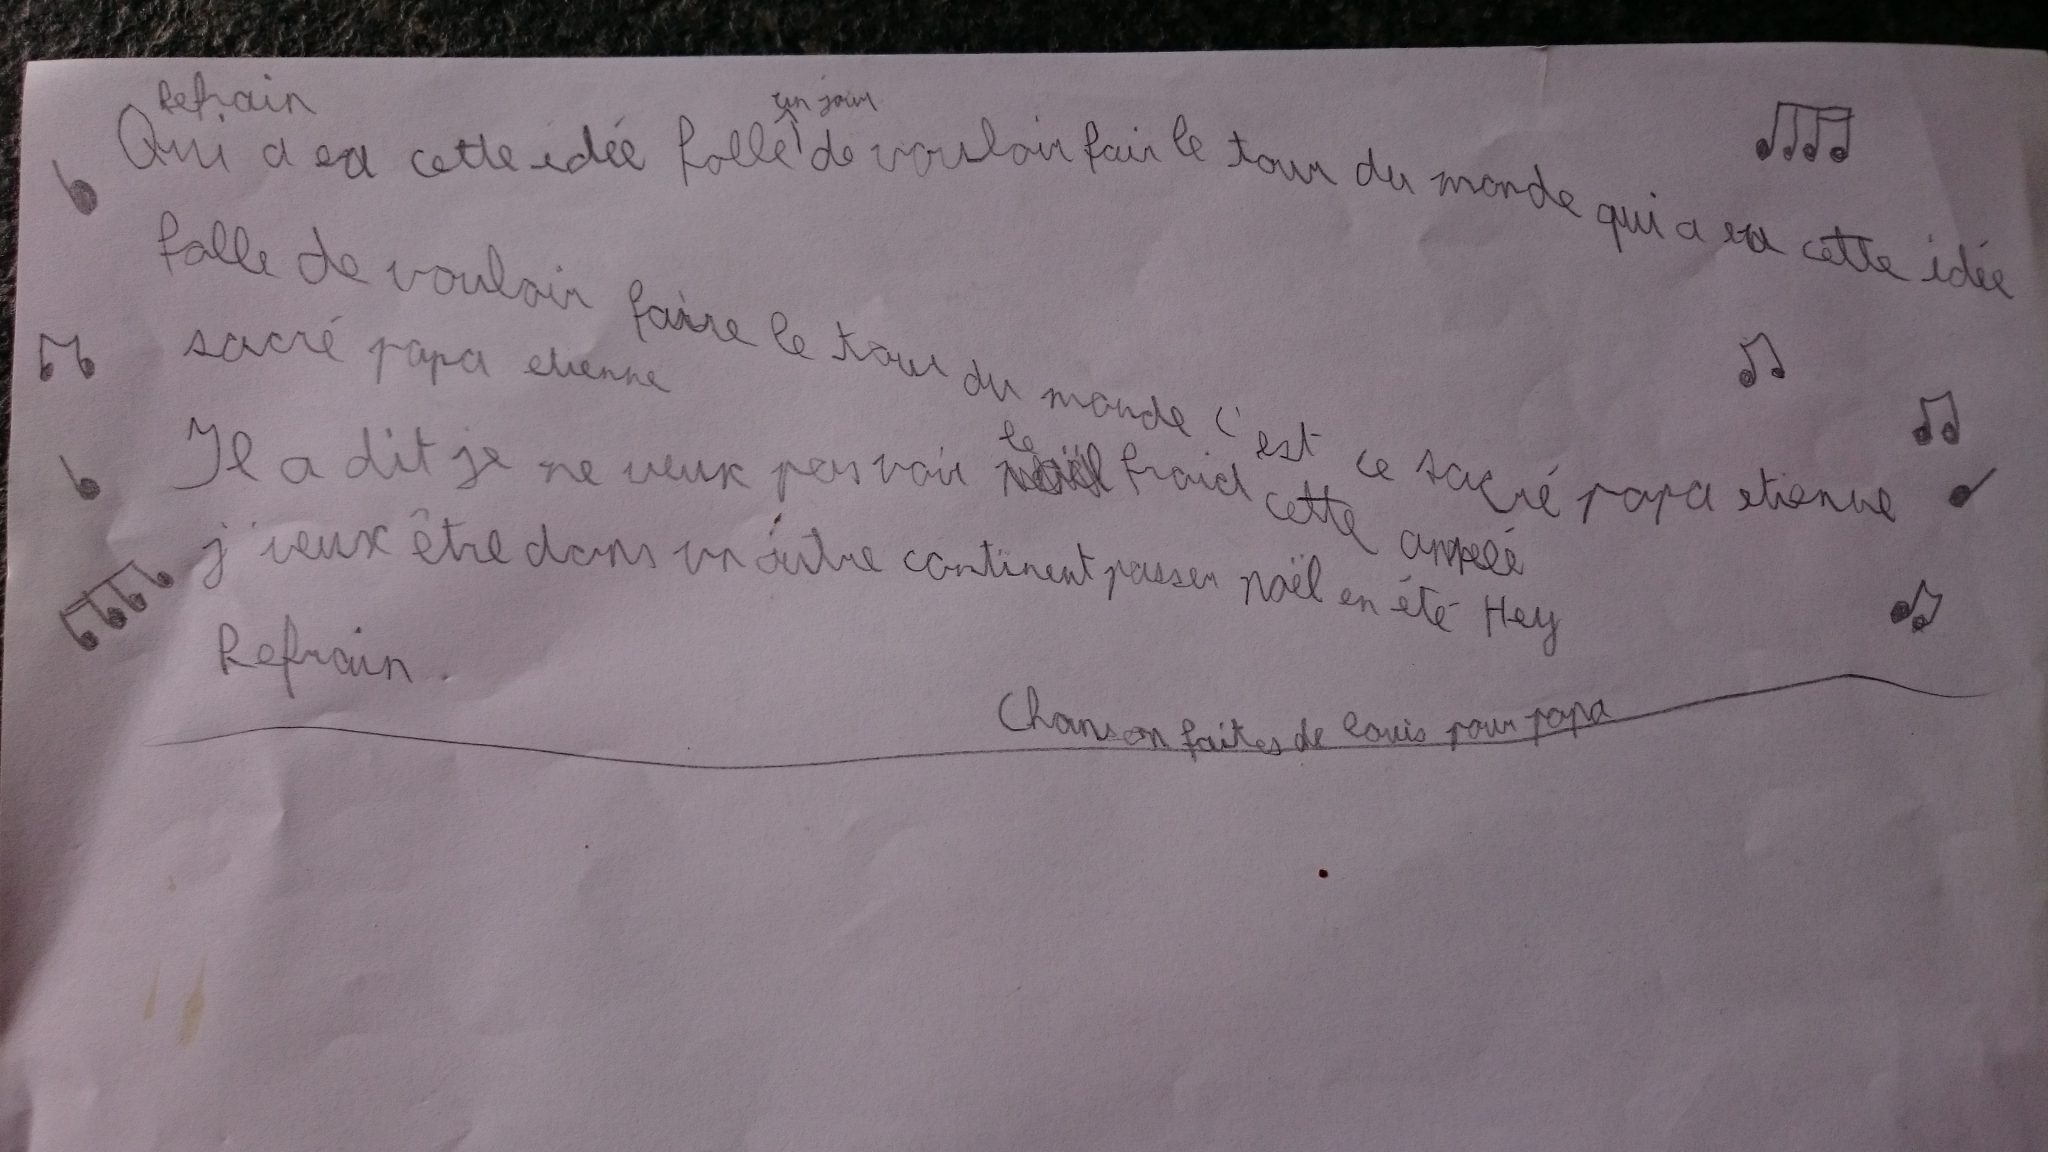 Refrain
Qui a eu cette idée folle un jour de vouloir fair le tour du monde qui a eu cette idée
folle de vouloir faire le tour du monde c'est ce sacré papa etienne
sacré papa etienne
Il a dit je ne veux pas voir le froid cette
j'veux être dans un autre continent passer noël en été Hey
Refrain.
Chanson faites de louis pour papa